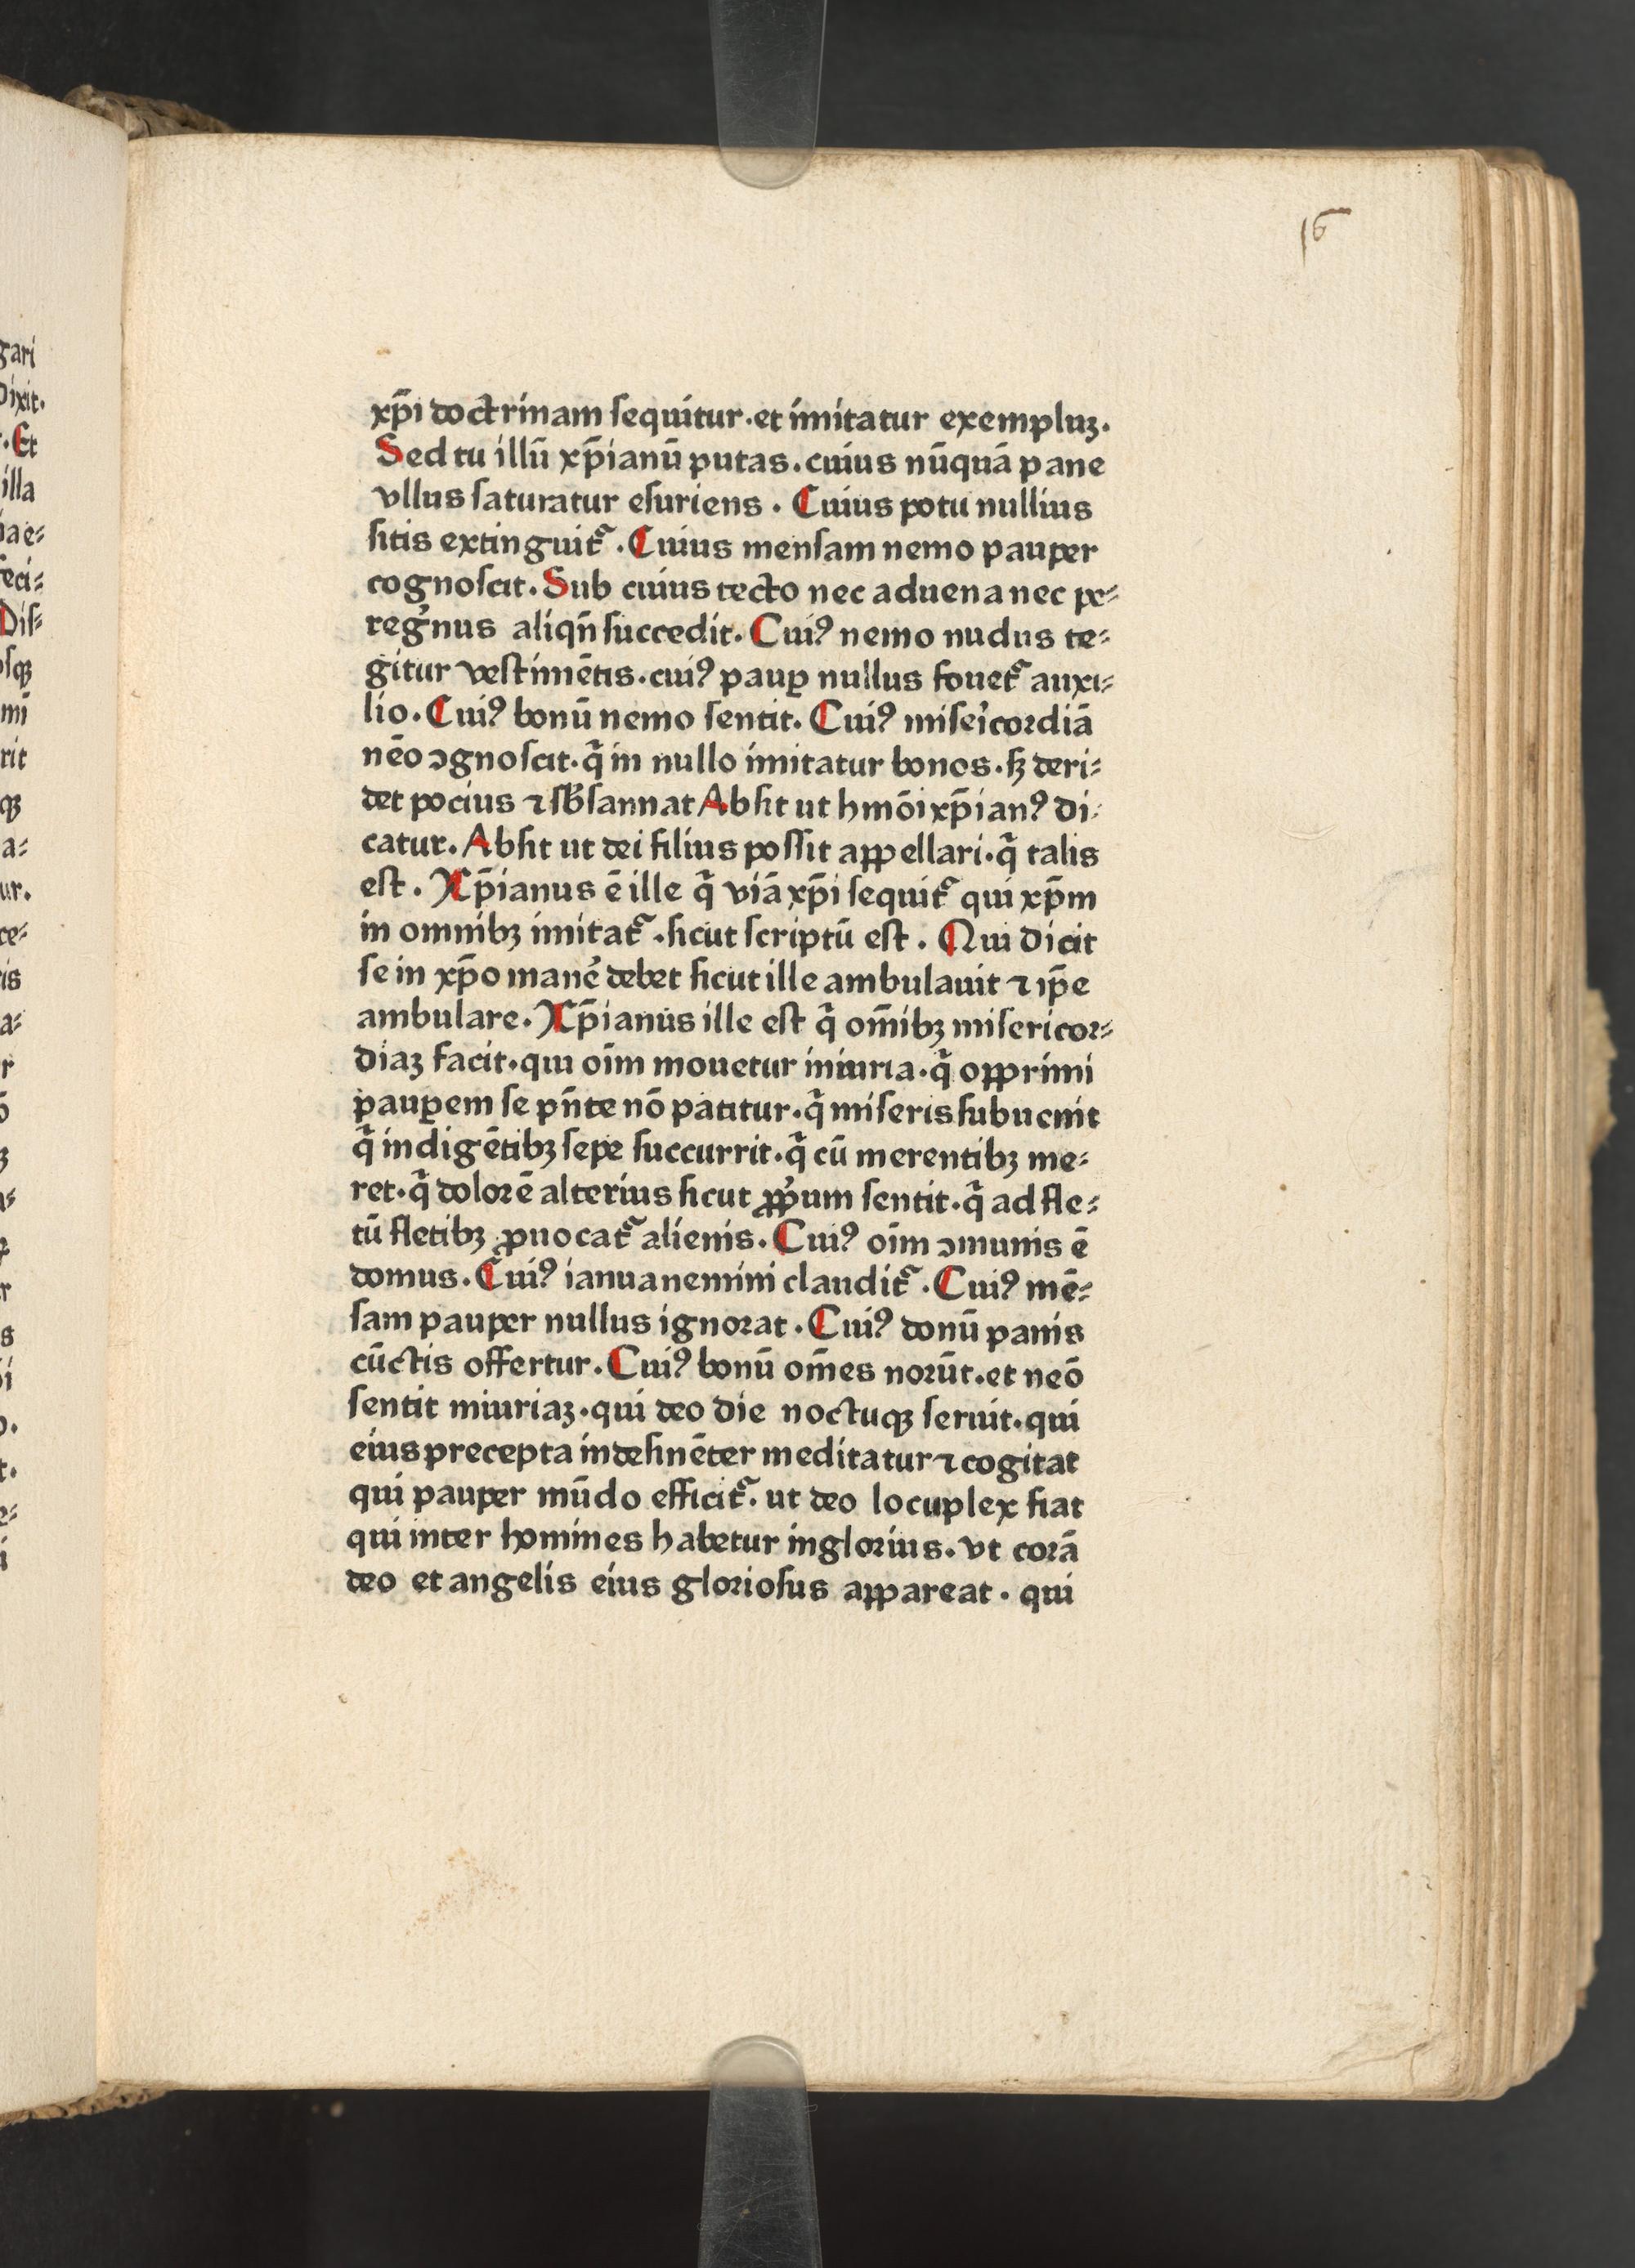 16
xp̄i doctrinam ſequitur·et imitatur exempluꝫ.
Sed tu illū xp̄ianū putas.cuius nūquā pane
vllus ſaturatur eſuriens . Cuius potu nullius
ſitis extinguit᷑ .Cuius menſam nemo pauper
cognoſcit.Sub cuius tecto nec aduena nec pe⸗
reg̛nus aliqn̄ ſuccedit.Cuiꝰ nemo nudus te⸗
gitur veſtimētis.cuiꝰ paup̱ nullus fouet᷑ auxi⸗
lio.Cuiꝰ bonū nemo ſentit.Cuiꝰ miſeıͥcoꝛdiā
nēo ↄgnoſcit·qͥ in nullo imitatur bonos.ſꝫ deri⸗
det pocius ⁊ ſb̄ſannat Abſit ut hmōi xp̄ianꝰ di⸗
catur.Abſit ut dei filius poſſit appellari·qͥ talis
eſt . Xp̄ianus ē ille qͥ viā xp̄i ſequit᷑ qui xp̄m
in omnibꝫ imitat᷑ .ſicut ſcriptū eſt . Qui dicit
ſe in xp̄o manē̛ debet ſicut ille ambulauit ⁊ ip̄e
ambulare.Xp̄ianus ille eſt qͥ om̄ibꝫ miſericoꝛ⸗
diaꝫ facit·qui oīm mouetur iniuria·qͥ opprimi
pauꝑem ſe pn̄te nō patitur·qͥ miſeris ſubuenit
qͥ indigētibꝫ ſepe ſuccurrit·qͥ cū merentibꝫ me⸗
ret·qͥ doloꝛē alterius ſicut ꝓpͥum ſentit·qͥ ad fle⸗
tū fletibꝫ ꝓuocat᷑ alienis.Cuiꝰ oīm ↄmunis ē
domus.Cuiꝰ ianua nemini claudit᷑ .Cuiꝰ mē⸗
ſam pauper nullus ignoꝛat .Cuiꝰ donū panis
cūctis offertur.Cuiꝰ bonū om̄es noꝛūt.et neō
ſentit iniuriaꝫ·qui deo die noctuqꝫ ſeruit.qui
eius precepta indeſinēter meditatur ⁊ cogitat
qui pauper mūdo efficit᷑. ut deo locuplex fiat
qui inter homines habetur ingloꝛius.vt coꝛā
deo et angelis eius gloꝛioſus appareat . qui